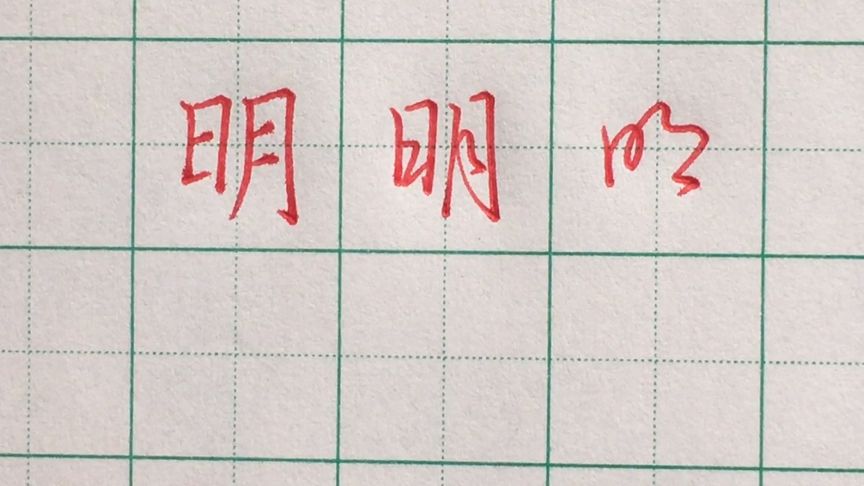 明 明 明